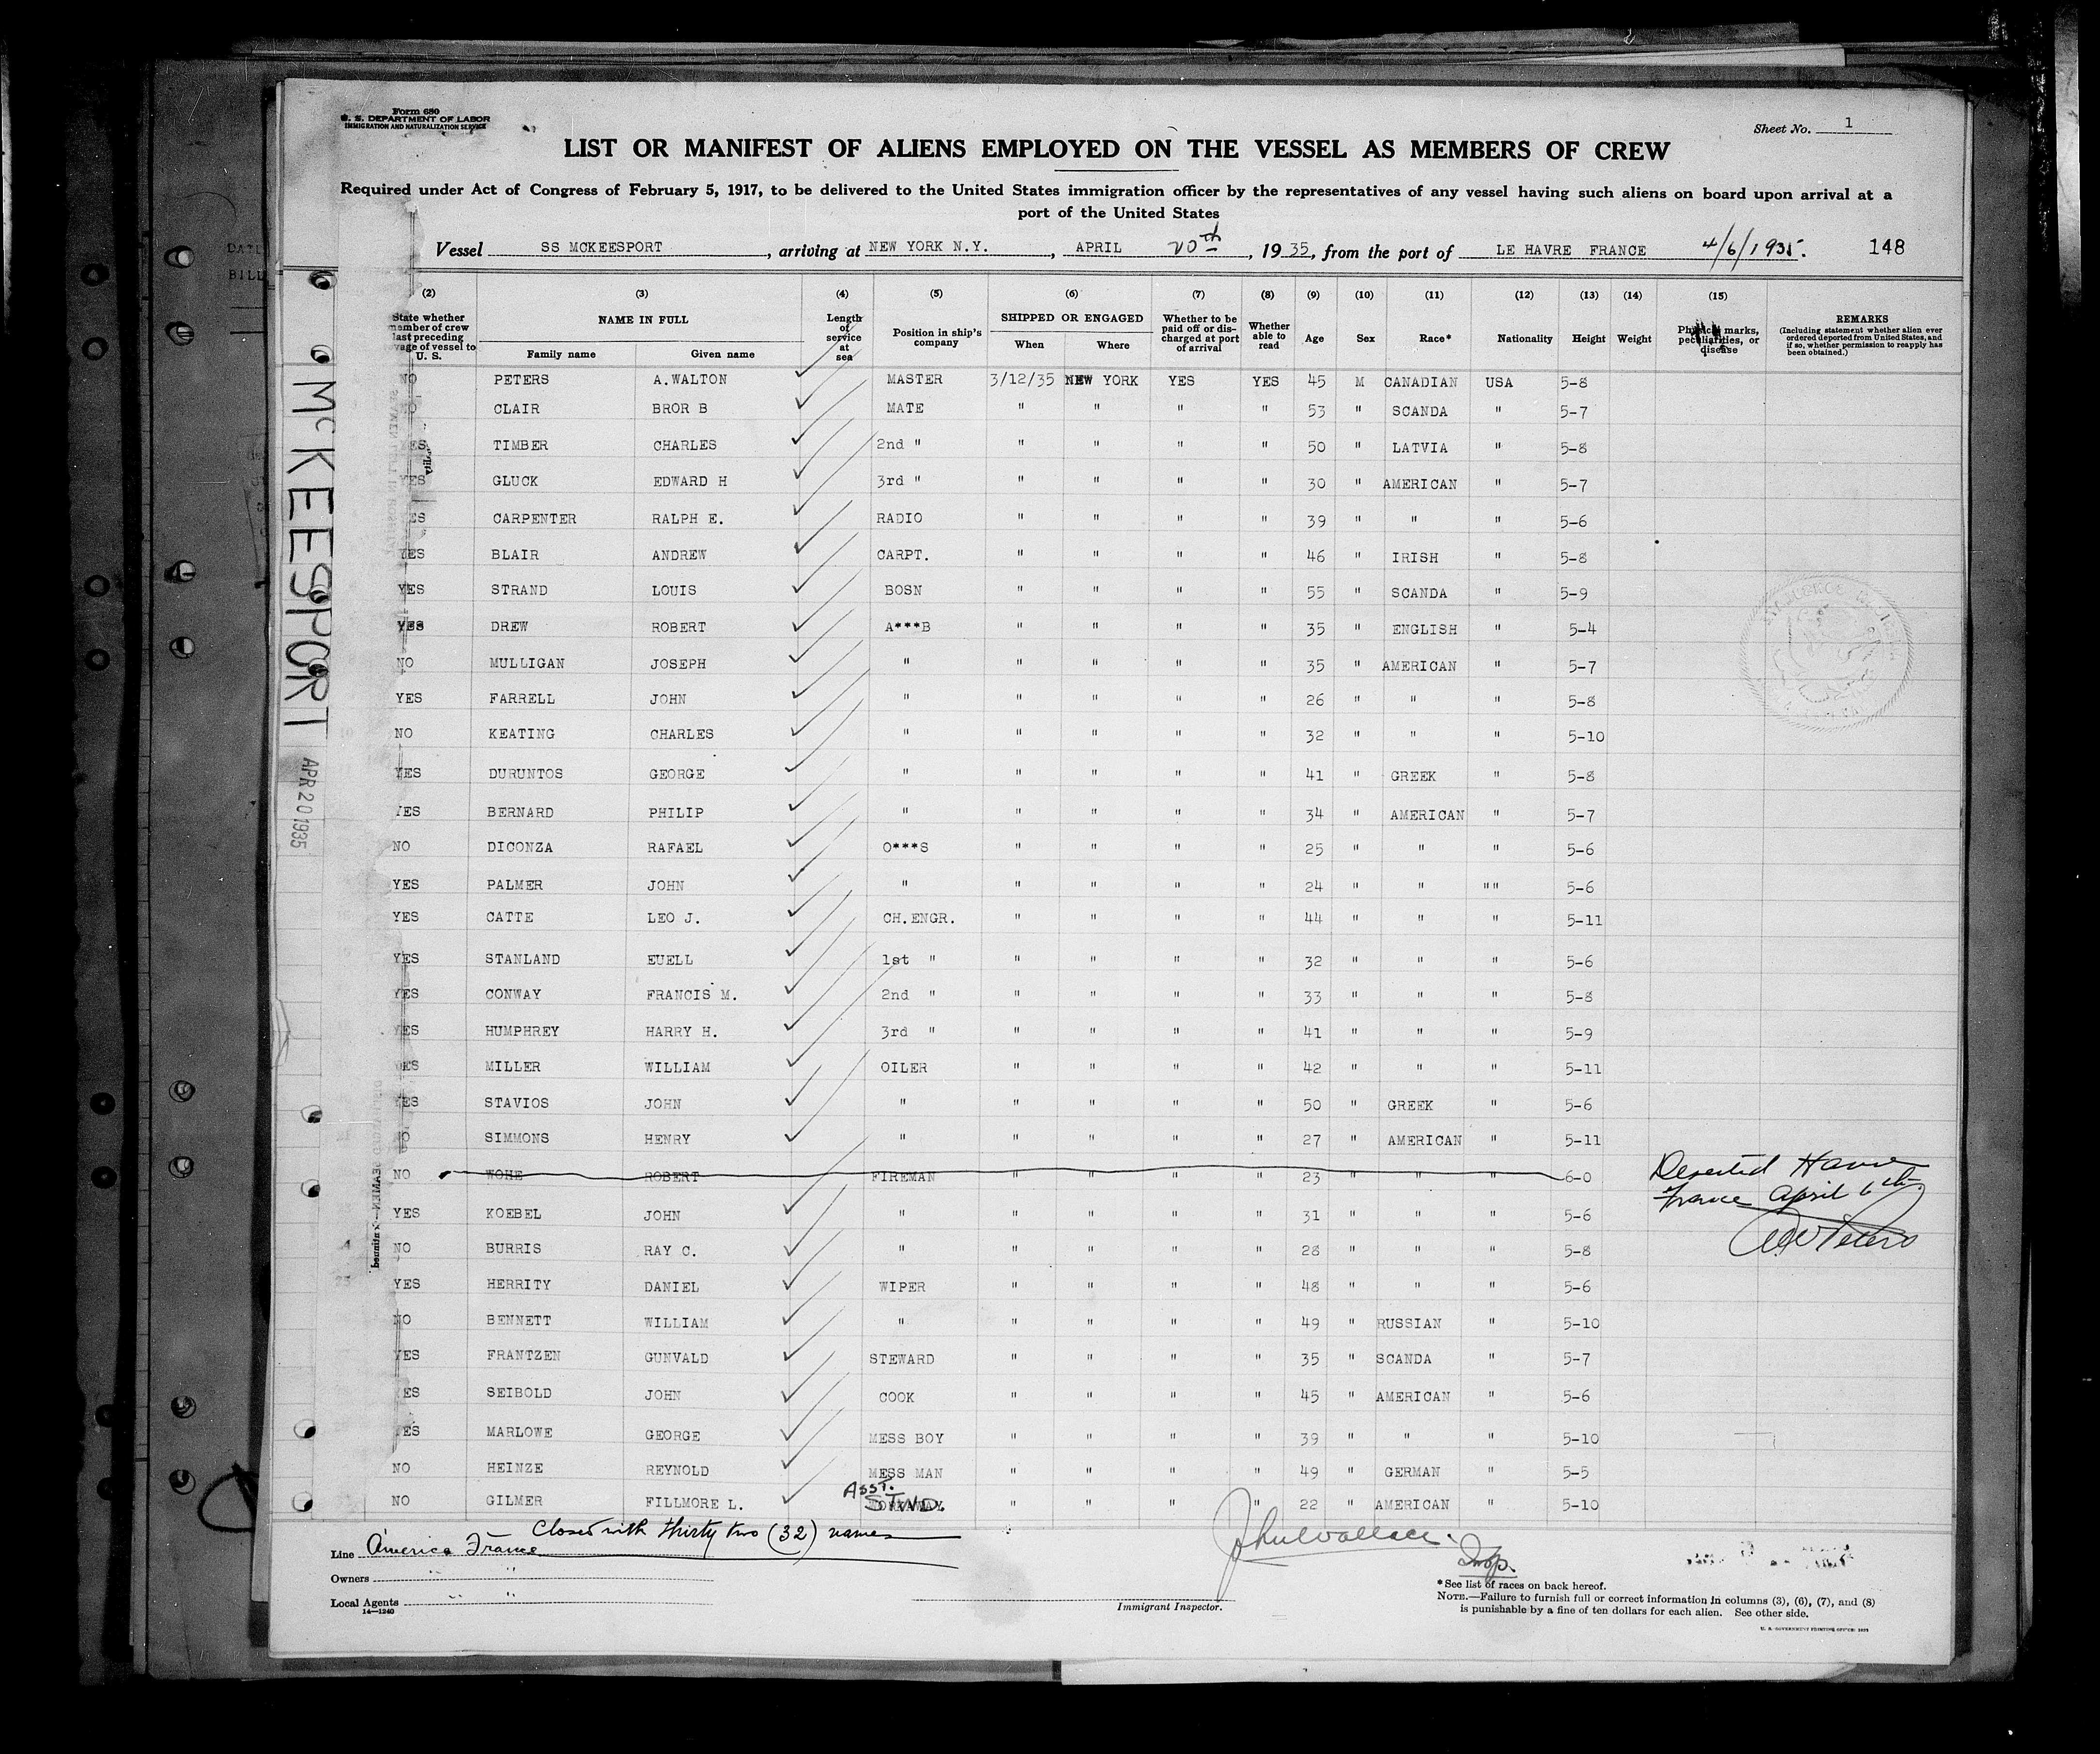 Form 680
U. S. DEPARTMENT OF LABOR
IMMIGRATION AND NATURALIZATION SERVICE
Sheet No. 1
LIST OR MANIFEST OF ALIENS EMPLOYED ON THE VESSEL AS MEMBERS OF CREW
Required under Act of Congress of February 5, 1917, to be delivered to the United States immigration officer by the representatives of any vessel having such aliens on board upon arrival at a
port of the United States
Vessel SS MCKEESPORT, arriving at NEW YORK N.Y., APRIL 20th, 1935, from the port of LE HAVRE FRANCE 4/6/1935. 148
(2) (3) (4) (5) (6) (7) (8) (9) (10) (11) (12) (13) (14) (15)
State whether member of crew last preceding voyage of vessel to U. S.
NAME IN FULL
Family name Given name
Length of service at sea
Position in ship's company
SHIPPED OR ENGAGED
When Where
Whether to be paid off or discharged at port of arrival
Whether able to read
Age Sex Race* Nationality Height Weight
Physical marks, peculiarities, or disease
REMARKS
(Including statement whether alien ever ordered deported from United States, and if so, whether permission to reapply has been obtained.)
NO PETERS A.WALTON MASTER 3/12/35 NEW YORK YES YES 45 M CANADIAN USA 5-8
NO CLAIR BROR B MATE " " " " 53 " SCANDA " 5-7
YES TIMBER CHARLES 2nd " " " " " 50 " LATVIA " 5-8
YES GLUCK EDWARD H 3rd " " " " " 30 " AMERICAN " 5-7
YES CARPENTER RALPH E. RADIO " " " " 39 " " " 5-6
YES BLAIR ANDREW CARPT. " " " " 46 " IRISH " 5-8
YES STRAND LOUIS BOSN " " " " 55 " SCANDA " 5-9
YES DREW ROBERT A***B " " " " 35 " ENGLISH " 5-4
NO MULLIGAN JOSEPH " " " " " 35 " AMERICAN " 5-7
YES FARRELL JOHN " " " " " 26 " " " 5-8
NO KEATING CHARLES " " " " " 32 " " " 5-10
YES DURUNTOS GEORGE " " " " " 41 " GREEK " 5-8
YES BERNARD PHILIP " " " " " 34 " AMERICAN " 5-7
NO DICONZA RAFAEL O***S " " " " 25 " " " 5-6
YES PALMER JOHN " " " " " 24 " " "" 5-6
YES CATTE LEO J. CH.ENGR. " " " " 44 " " " 5-11
YES STANLAND EUELL 1st " " " " " 32 " " " 5-6
YES CONWAY FRANCIS M. 2nd " " " " " 33 " " " 5-8
YES HUMPHREY HARRY H. 3rd " " " " " 41 " " " 5-9
YES MILLER WILLIAM OILER " " " " 42 " " " 5-11
YES STAVIOS JOHN " " " " " 50 " GREEK " 5-6
NO SIMMONS HENRY " " " " " 27 " AMERICAN " 5-11
NO WOHE ROBERT FIREMAN " " " " 23 " " " 6-0 Deserted Havre
France April 6th
A.W Peters
YES KOEBEL JOHN " " " " " 31 " " " 5-6
NO BURRIS RAY C. " " " " " 28 " " " 5-8
YES HERRITY DANIEL WIPER " " " " 48 " " " 5-6
NO BENNETT WILLIAM " " " " " 49 " RUSSIAN " 5-10
YES FRANTZEN GUNVALD STEWARD " " " " 35 " SCANDA " 5-7
YES SEIBOLD JOHN COOK " " " " 45 " AMERICAN " 5-6
YES MARLOWE GEORGE MESS BOY " " " " 39 " " " 5-10
NO HEINZE REYNOLD MESS MAN " " " " 49 " GERMAN " 5-5
NO GILMER FILLMORE L. ASST. STWD. " " " " 22 " AMERICAN " 5-10
Closed with thirty two (32) names
Line America France
Owners " "
Local Agents " "
14—1240
John Wallace.
Insp.
Immigrant Inspector.
*See list of races on back hereof.
NOTE.—Failure to furnish full or correct information in columns (3), (6), (7), and (8)
is punishable by a fine of ten dollars for each alien. See other side.
U. S. GOVERNMENT PRINTING OFFICE
McKEESPORT
APR 20 1935
DATE
BILL